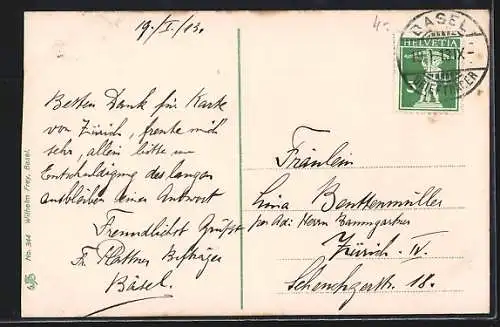 19./I./03.
Besten Dank für Karte
von Zürich, freute mich
sehr, allein bitte um
Entschuldigung des langen
ausbleiben einer Antwort
Freundlichst Grüßt
Fr.
Basel.
No. 344 Wilhelm Frey, Basel.
BASEL
HELVETIA
5
BRIEFTRÄGER
Fräulein
Lina Benttenmüller
per Adr. Herrn Baumgartner
Zürich. IV.
Scheuchzerstr. 18.